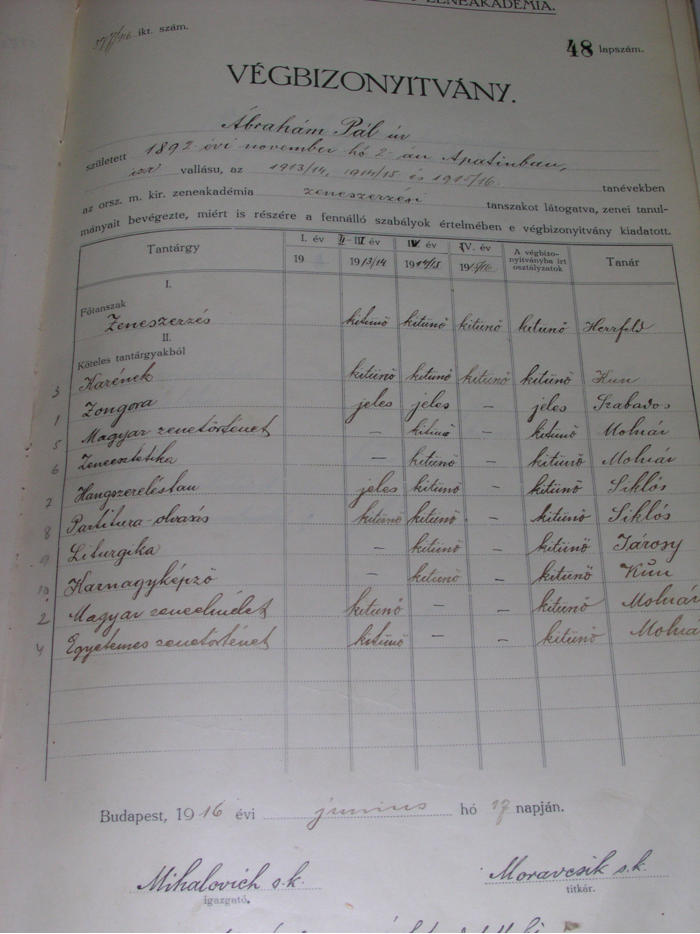 ZENEAKADÉMIA.
ikt. szám.
48 lapszám.
VÉGBIZONYITVÁNY.
Ábrahám Pál úr
született 1892 évi november hó 2-án Apatinban,
izr vallásu, az 1913/14, 1914/15 és 1915/16. tanévekben
az orsz. m. kir. zeneakadémia zeneszerzési tanszakot látogatva, zenei tanul-
mányait bevégezte, miért is részére a fennálló szabályok értelmében e végbizonyitvány kiadatott.
Tantárgy I. év II-III év IV év IV. év A végbizo-nyitványba irt osztályzatok Tanár
19 1913/14 1914/15 1915/16
I.
Főtanszak
Zeneszerzés kitünő kitünő kitünő kitünő Herzfeld
II.
Köteles tantárgyakból
3 Karének kitünő kitünő kitünő kitünő Kun
1 Zongora jeles jeles – jeles Szabados
5 Magyar zenetörténet – kitünő – kitünő Molnár
6 Zeneesztétika – kitünő – kitünő Molnár
7 Hangszereléstan jeles kitünő – kitünő Siklós
8 Partitura-olvasás kitünő kitünő – kitünő Siklós
9 Liturgika – kitünő – kitünő Járosy
10 Karnagyképző – kitünő – kitünő Kun
2 Magyar zeneelmélet kitünő – – kitünő Molnár
4 Egyetemes zenetörténet kitünő – – kitünő Molnár
Budapest, 1916 évi junius hó 17 napján.
Mihalovich s.k. Moravcsik s.k.
igazgató. titkár.